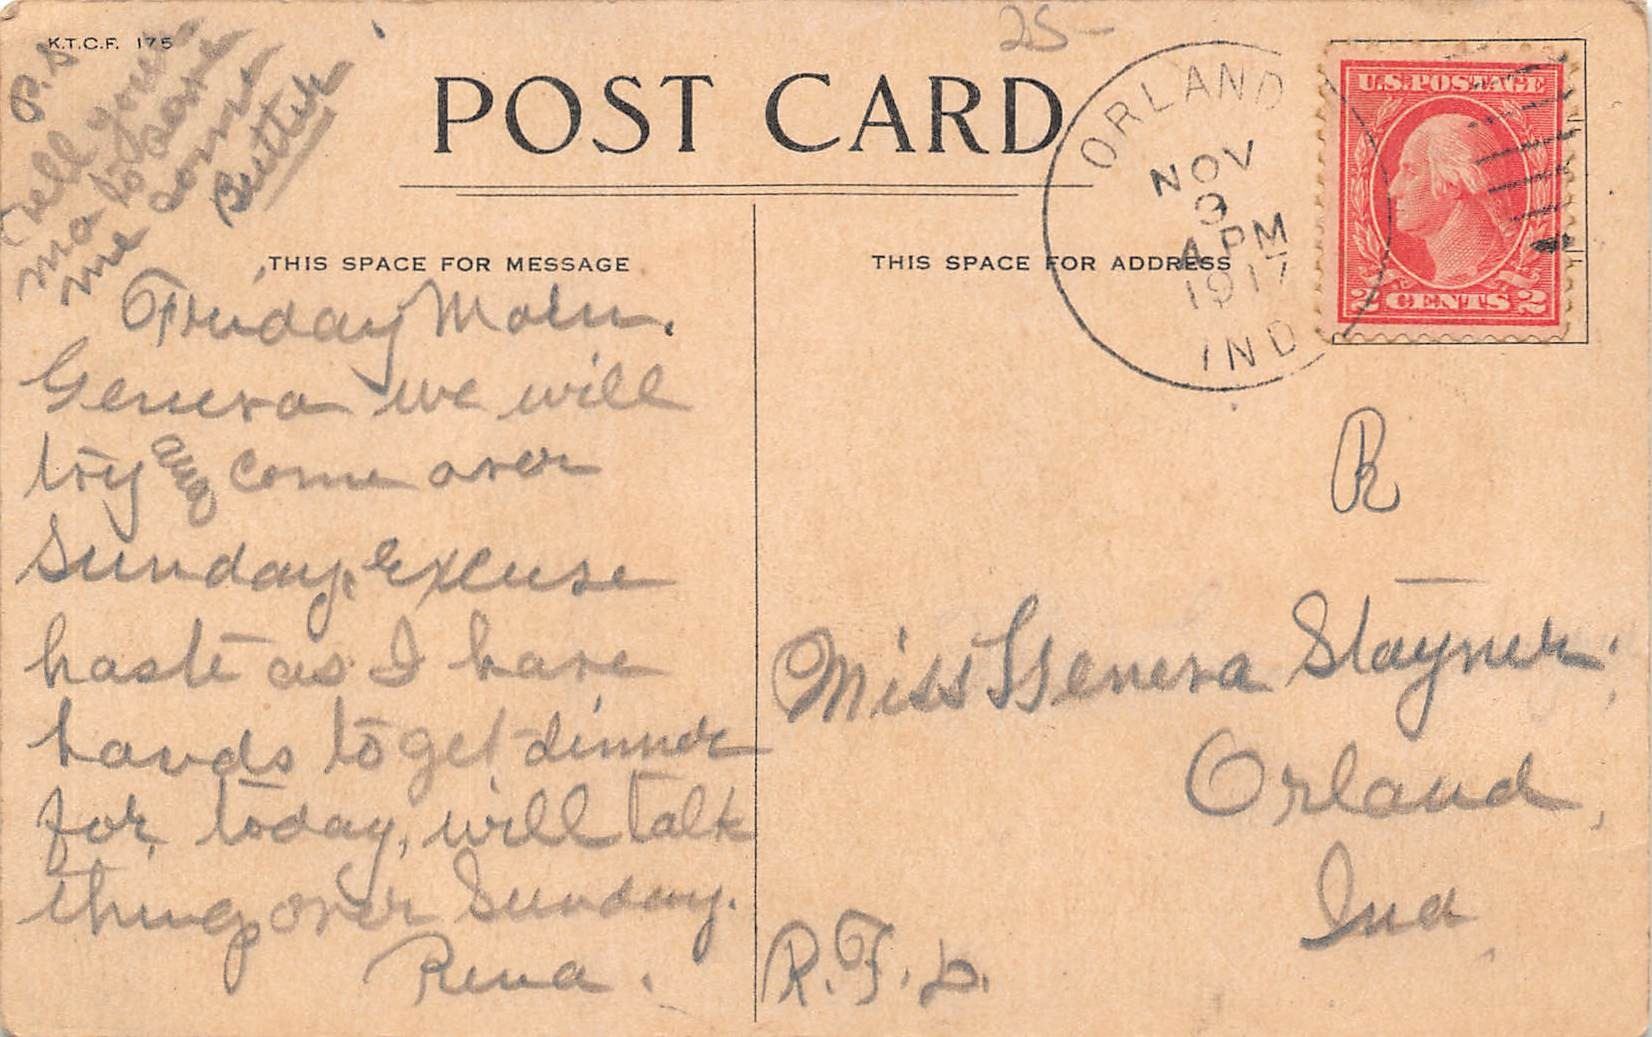 K.T.C.F. 175
25-
POST CARD
ORLAND
NOV
9
4 PM
1917
IND
U.S. POSTAGE
2 CENTS 2
P.S
Tell your
ma to save
me some
Butter
THIS SPACE FOR MESSAGE
Friday Morn.
Geneva we will
try and come over
Sunday, Excuse
haste as I have
hands to get dinner
for today, will talk
things over Sunday.
Rena.
THIS SPACE FOR ADDRESS
R
Miss Geneva Stayner.
Orland,
Ind
R.F.D.